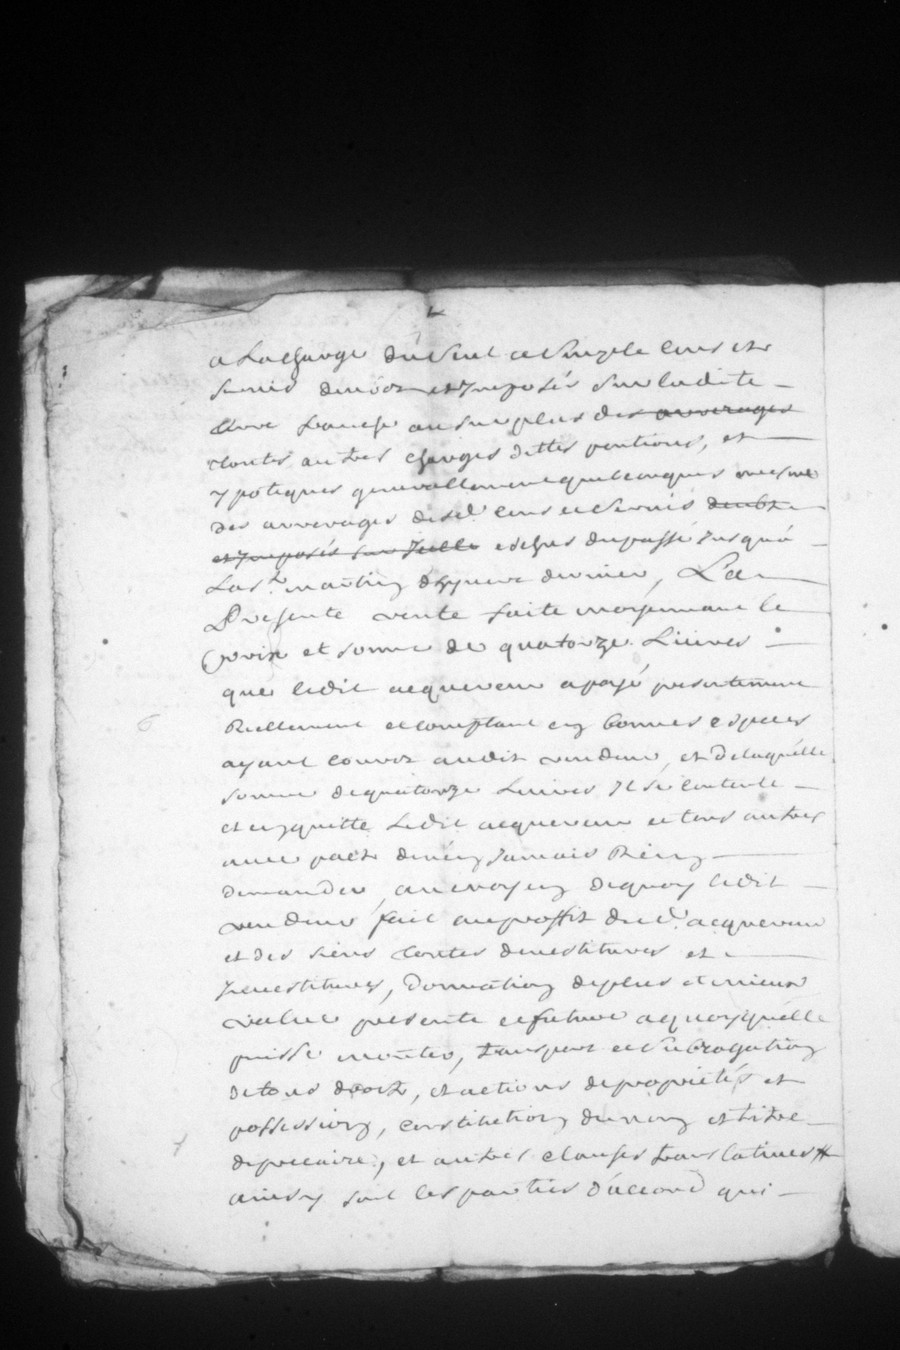 a La charge du seul et simple cens et
servis deubz et Imposés sur ladite
terre franche au surplus des arrerages
toutes autres charges dettes pentions, et
ypoteques generallement quelconques mesme
des arrerages desd. cens et servis deubz
et Imposés sur Icelle escheus du passé Jusqu'á
La st. martin d'hyver dernier, La
Presente vente faite moyennant le
prix et somme de quatorze Livres
que ledit acquereur a payé presentement
Reellement et comptant en bonnes especes
ayant courtz audit vendeur, et de laquelle
somme de quatorze Livres Il sé contente
et en quitte Ledit acquereur et tous autres
avec pacte de n'en Jamais Rien
demander, au moyen dequoy ledit
vendeur fait au proffit dud. acquereur
et des siens toutes devestitures et
Investitures, Donnation de plus et mieux
value presente et future a quoy qu'elle
puisse monter, transport et subrogation
de tous droitz, et actions de propriétés et
possession, constitution du nom et titre
de precaire, et autres clauses translatives #
ainsy sont les parties d'accord qui